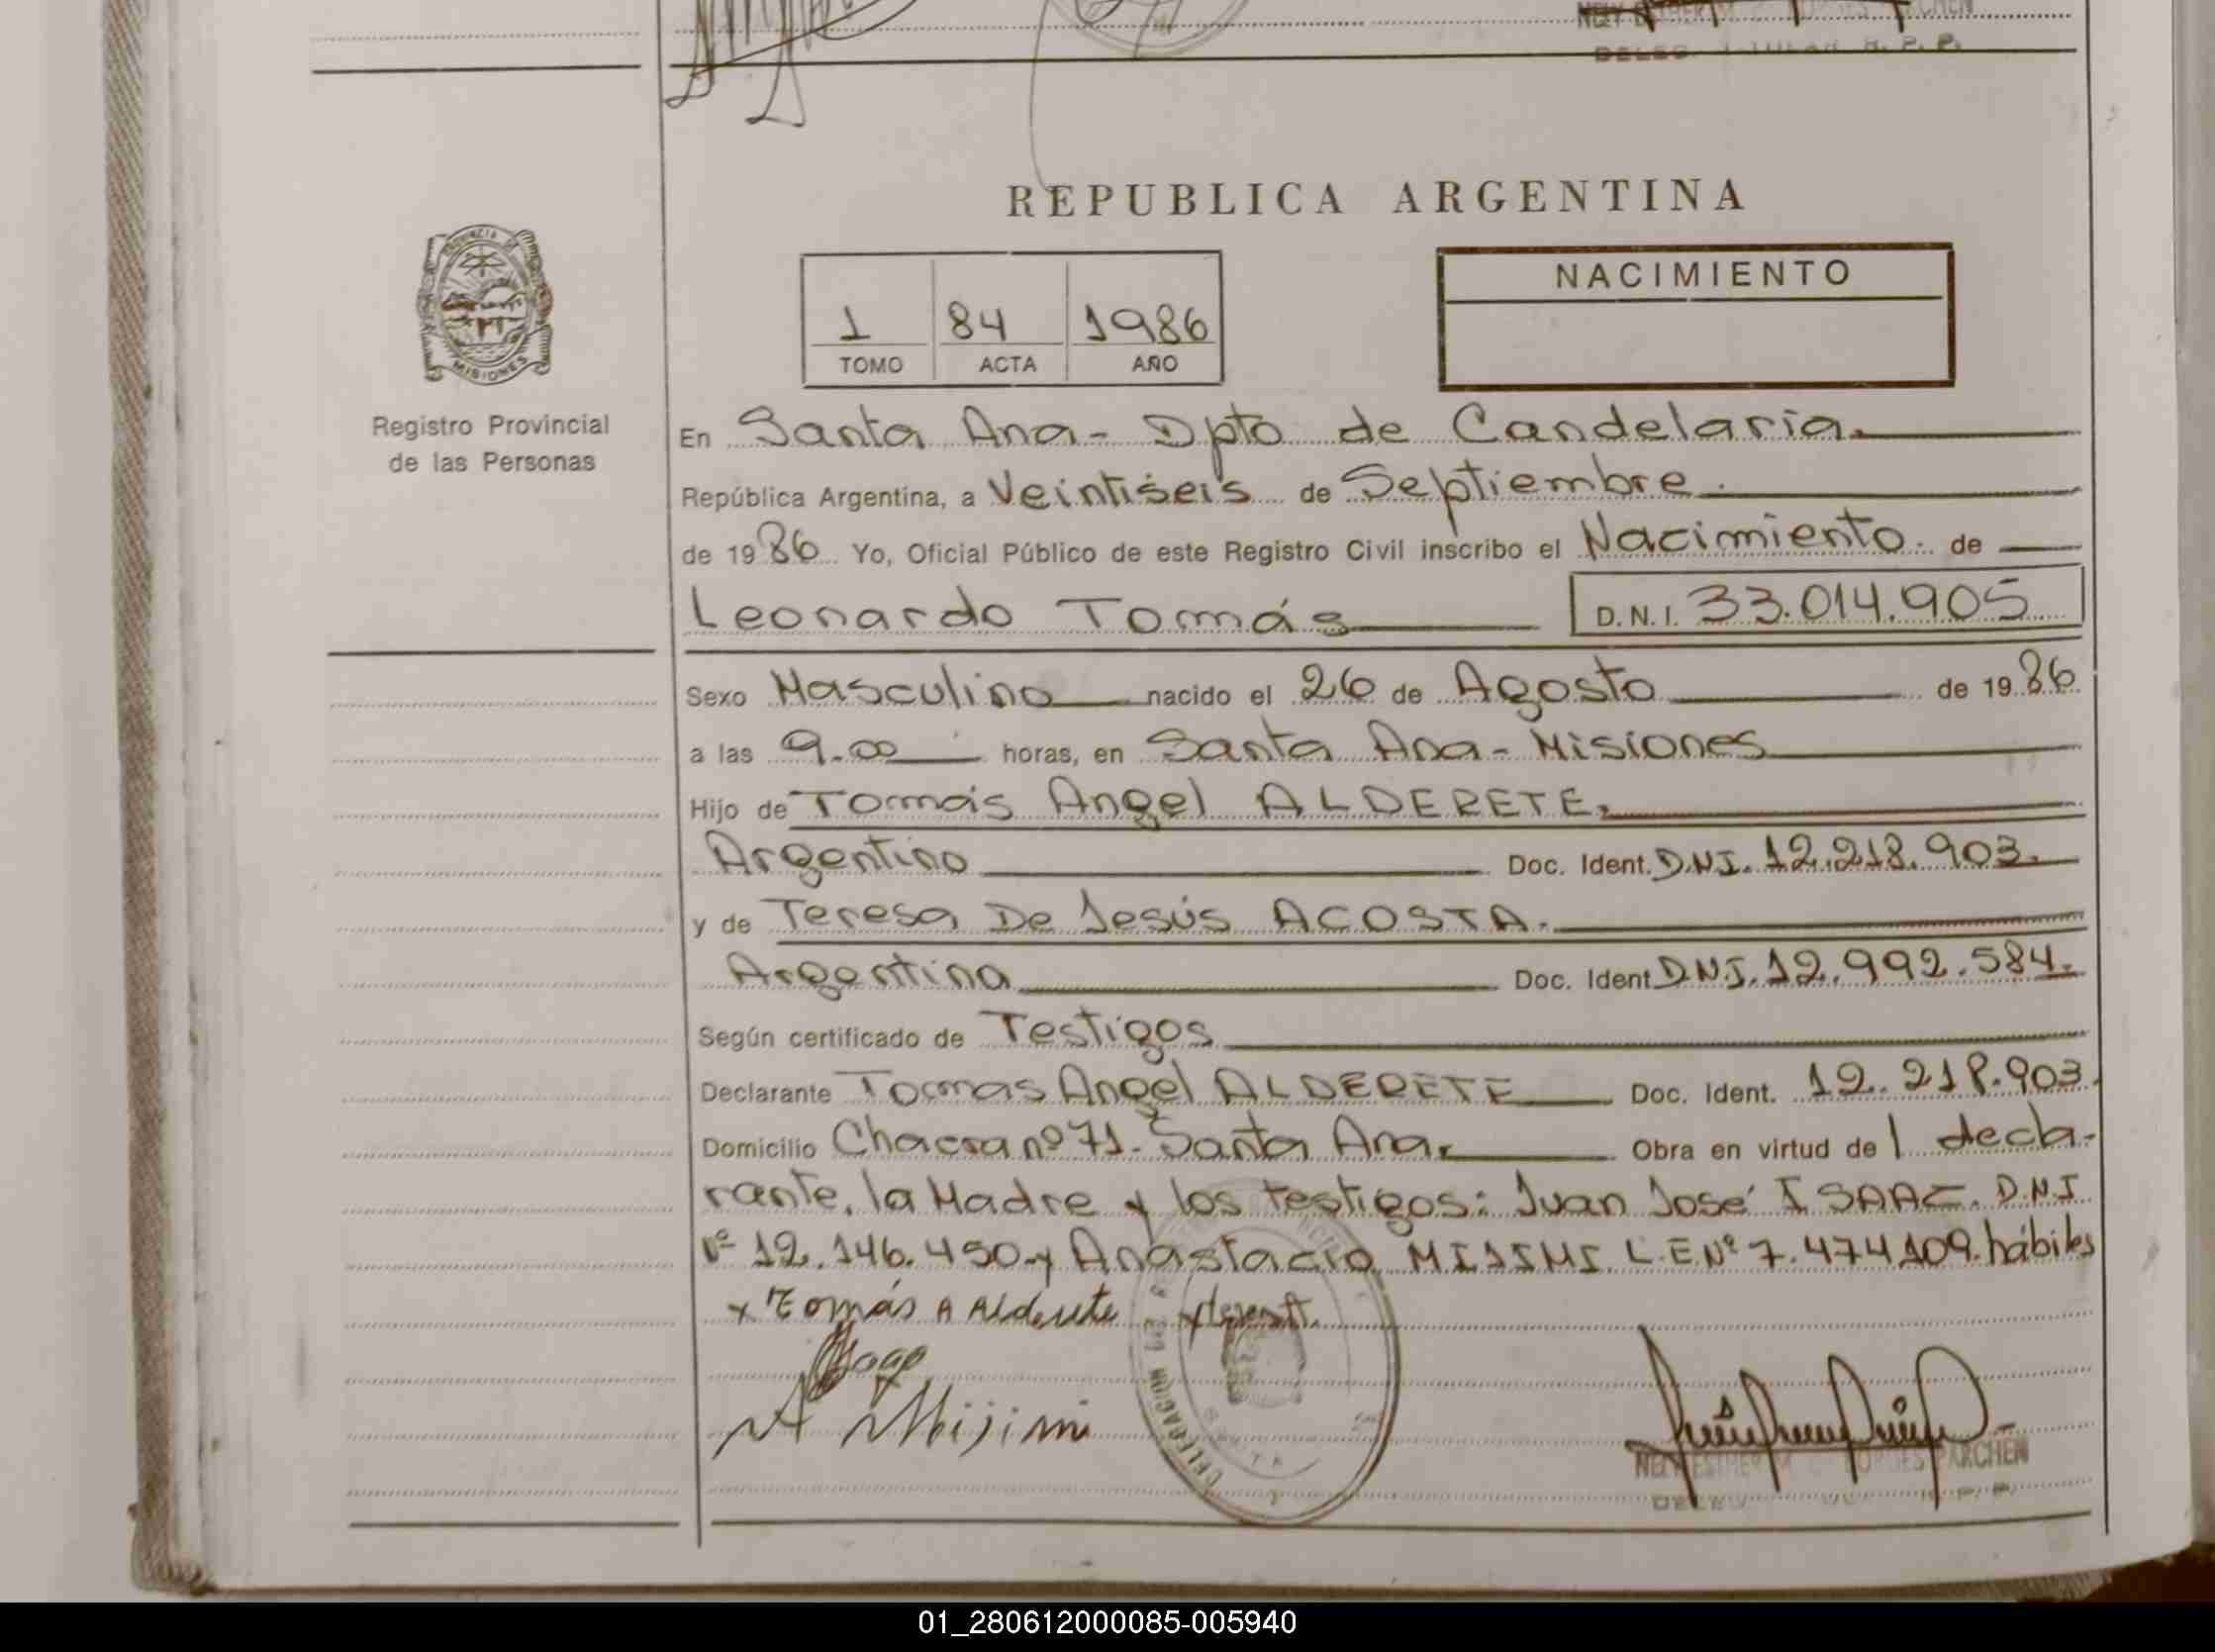 REPUBLICA ARGENTINA
NACIMIENTO
1 84 1986
TOMO ACTA AÑO
PROVINCIA DE
MISIONES
Registro Provincial
de las Personas
En Santa Ana - Dpto de Candelaria.
República Argentina, a Veintiseis de Septiembre.
de 1986 Yo, Oficial Público de este Registro Civil inscribo el Nacimiento. de
Leonardo Tomás D.N.I. 33.014.905
Sexo Masculino nacido el 26 de Agosto de 1986
a las 9.00 horas, en Santa Ana - Misiones
Hijo de Tomás Angel ALDERETE.
Argentino Doc. Ident. D.N.I. 12.218.903.
y de Teresa De Jesús ACOSTA.
Argentina Doc. Ident. D.N.I. 12.992.584.
Según certificado de Testigos
Declarante Tomas Angel ALDERETE Doc. Ident. 12.218.903.
Domicilio Chacra nº 71 - Santa Ana. Obra en virtud de l decla-
rante, la Madre y los testigos: Juan José ISAAC. D.N.I
Nº 12.146.450 y Anastacio MISIMI L.E Nº 7.474.109. hábiles
x Tomás A Alderete
A Misimi
DELEGACION
NELY ESTHER BORGES PARCHEN
01_280612000085-005940